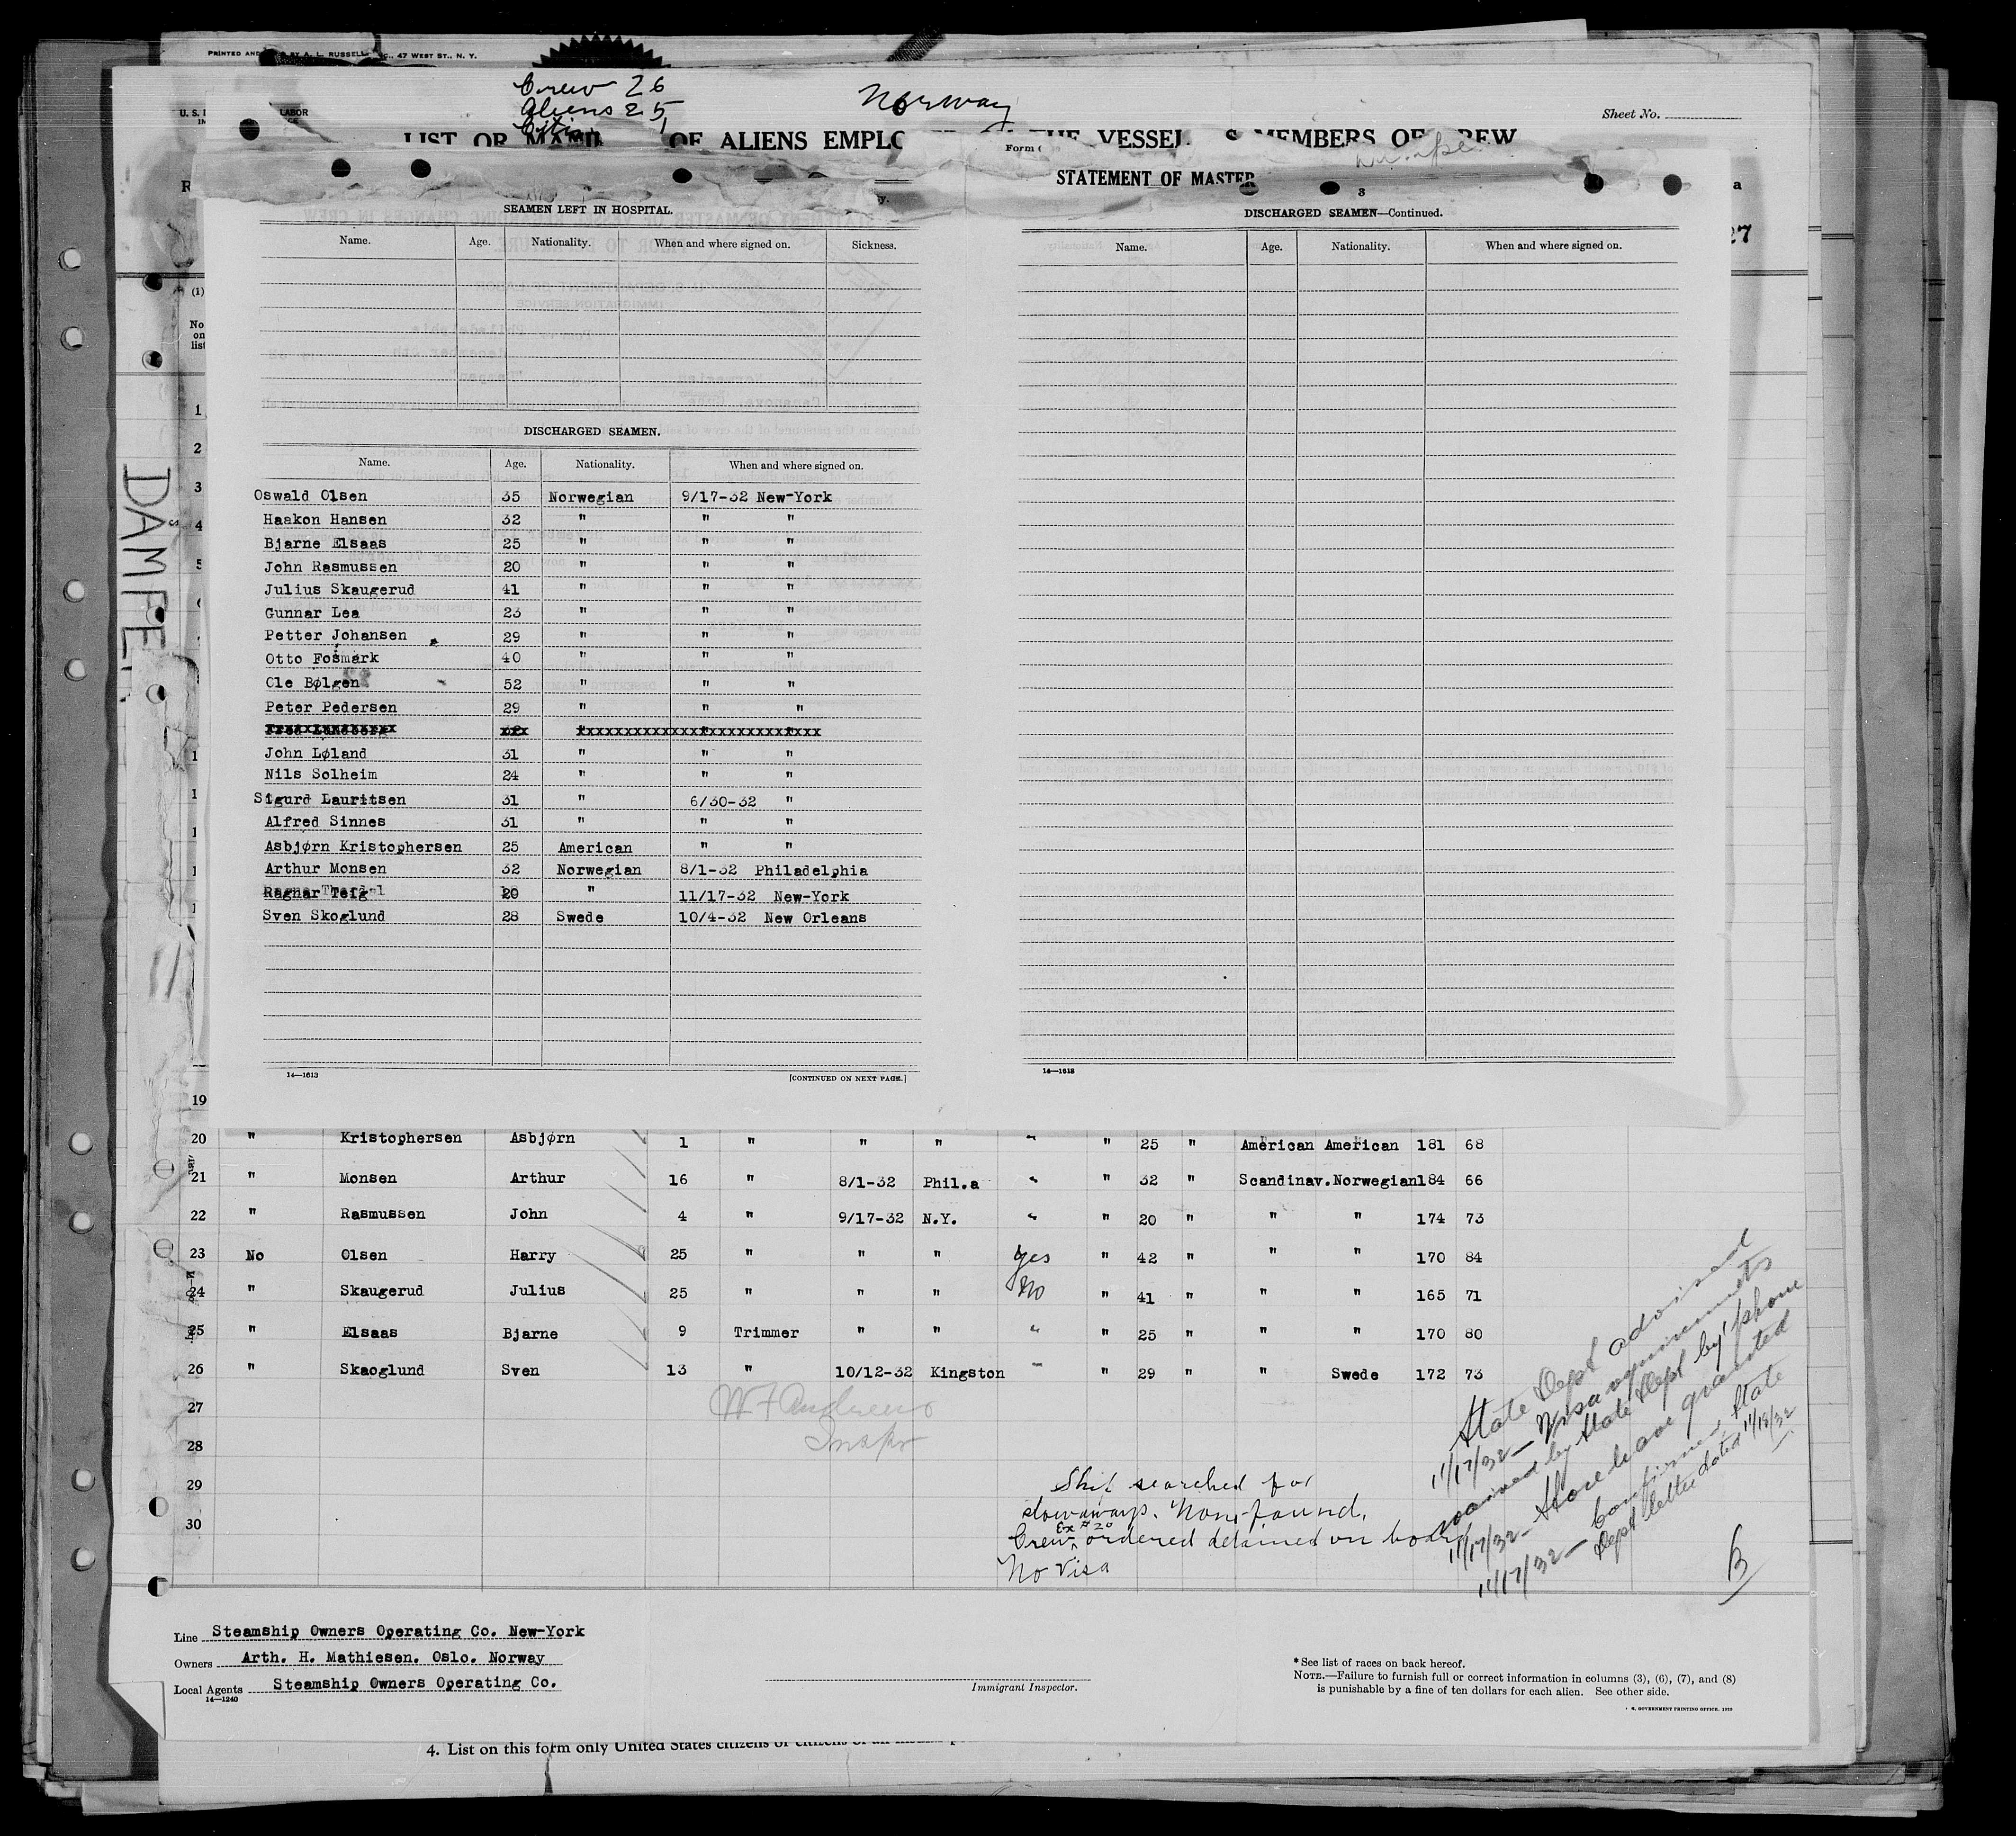 PRINTED AND BY A. L. RUSSELL, INC., 47 WEST ST., N. Y.
Crew 26
Aliens 25
1
Norway
LABOR
Sheet No.
LIST OR OF ALIENS VESSEL MEMBERS OF CREW
Form
STATEMENT OF MASTER
3
27
(1)
No on list
SEAMEN LEFT IN HOSPITAL.
Name. Age. Nationality. When and where signed on. Sickness.
DISCHARGED SEAMEN—Continued.
Name. Age. Nationality. When and where signed on.
DISCHARGED SEAMEN.
Name. Age. Nationality. When and where signed on.
Oswald Olsen 35 Norwegian 9/17-32 New-York
Haakon Hansen 32 " " "
Bjarne Elsaas 25 " " "
John Rasmussen 20 " " "
Julius Skaugerud 41 " " "
Gunnar Lea 23 " " "
Petter Johansen 29 " " "
Otto Fosmark 40 " " "
Ole Bølgen 52 " " "
Peter Pedersen 29 " " "
John Løland 31 " " "
Nils Solheim 24 " " "
Sigurd Lauritsen 31 " 6/30-32 "
Alfred Sinnes 31 " " "
Asbjørn Kristophersen 25 American " "
Arthur Monsen 32 Norwegian 8/1-32 Philadelphia
Ragnar Teig 20 " 11/17-32 New-York
Sven Skoglund 28 Swede 10/4-32 New Orleans
14—1613 [CONTINUED ON NEXT PAGE.]
14—1613
1
2
3
4
5
19
20 " Kristophersen Asbjørn 1 " " " " " 25 " American American 181 68
21 " Monsen Arthur 16 " 8/1-32 Phil.a " " 32 " Scandinav. Norwegian 184 66
22 " Rasmussen John 4 " 9/17-32 N.Y. " " 20 " " " 174 73
23 No Olsen Harry 25 " " " Yes " 42 " " " 170 84
24 " Skaugerud Julius 25 " " " No " 41 " " " 165 71
25 " Elsaas Bjarne 9 Trimmer " " " " 25 " " " 170 80
26 " Skaoglund Sven 13 " 10/12-32 Kingston " " 29 " " Swede 172 73
27
28
29
30
W F Andrews
Inspr
Ship searched for
stowaways. None found.
Ex #20
Crew ordered detained on board
No Visa
State Dept advised
11/17/32 — Visa requirements
waived by State Dept by 'phone
11/17/32 — Shore leave granted
11/17/32 — Confirmed State
Dept letter dated 11/18/32
B
Line Steamship Owners Operating Co. New-York
Owners Arth. H. Mathiesen. Oslo. Norway
Local Agents Steamship Owners Operating Co.
14—1240
Immigrant Inspector.
* See list of races on back hereof.
NOTE.—Failure to furnish full or correct information in columns (3), (6), (7), and (8)
is punishable by a fine of ten dollars for each alien. See other side.
GOVERNMENT PRINTING OFFICE
4. List on this form only United States citizens or citizens of